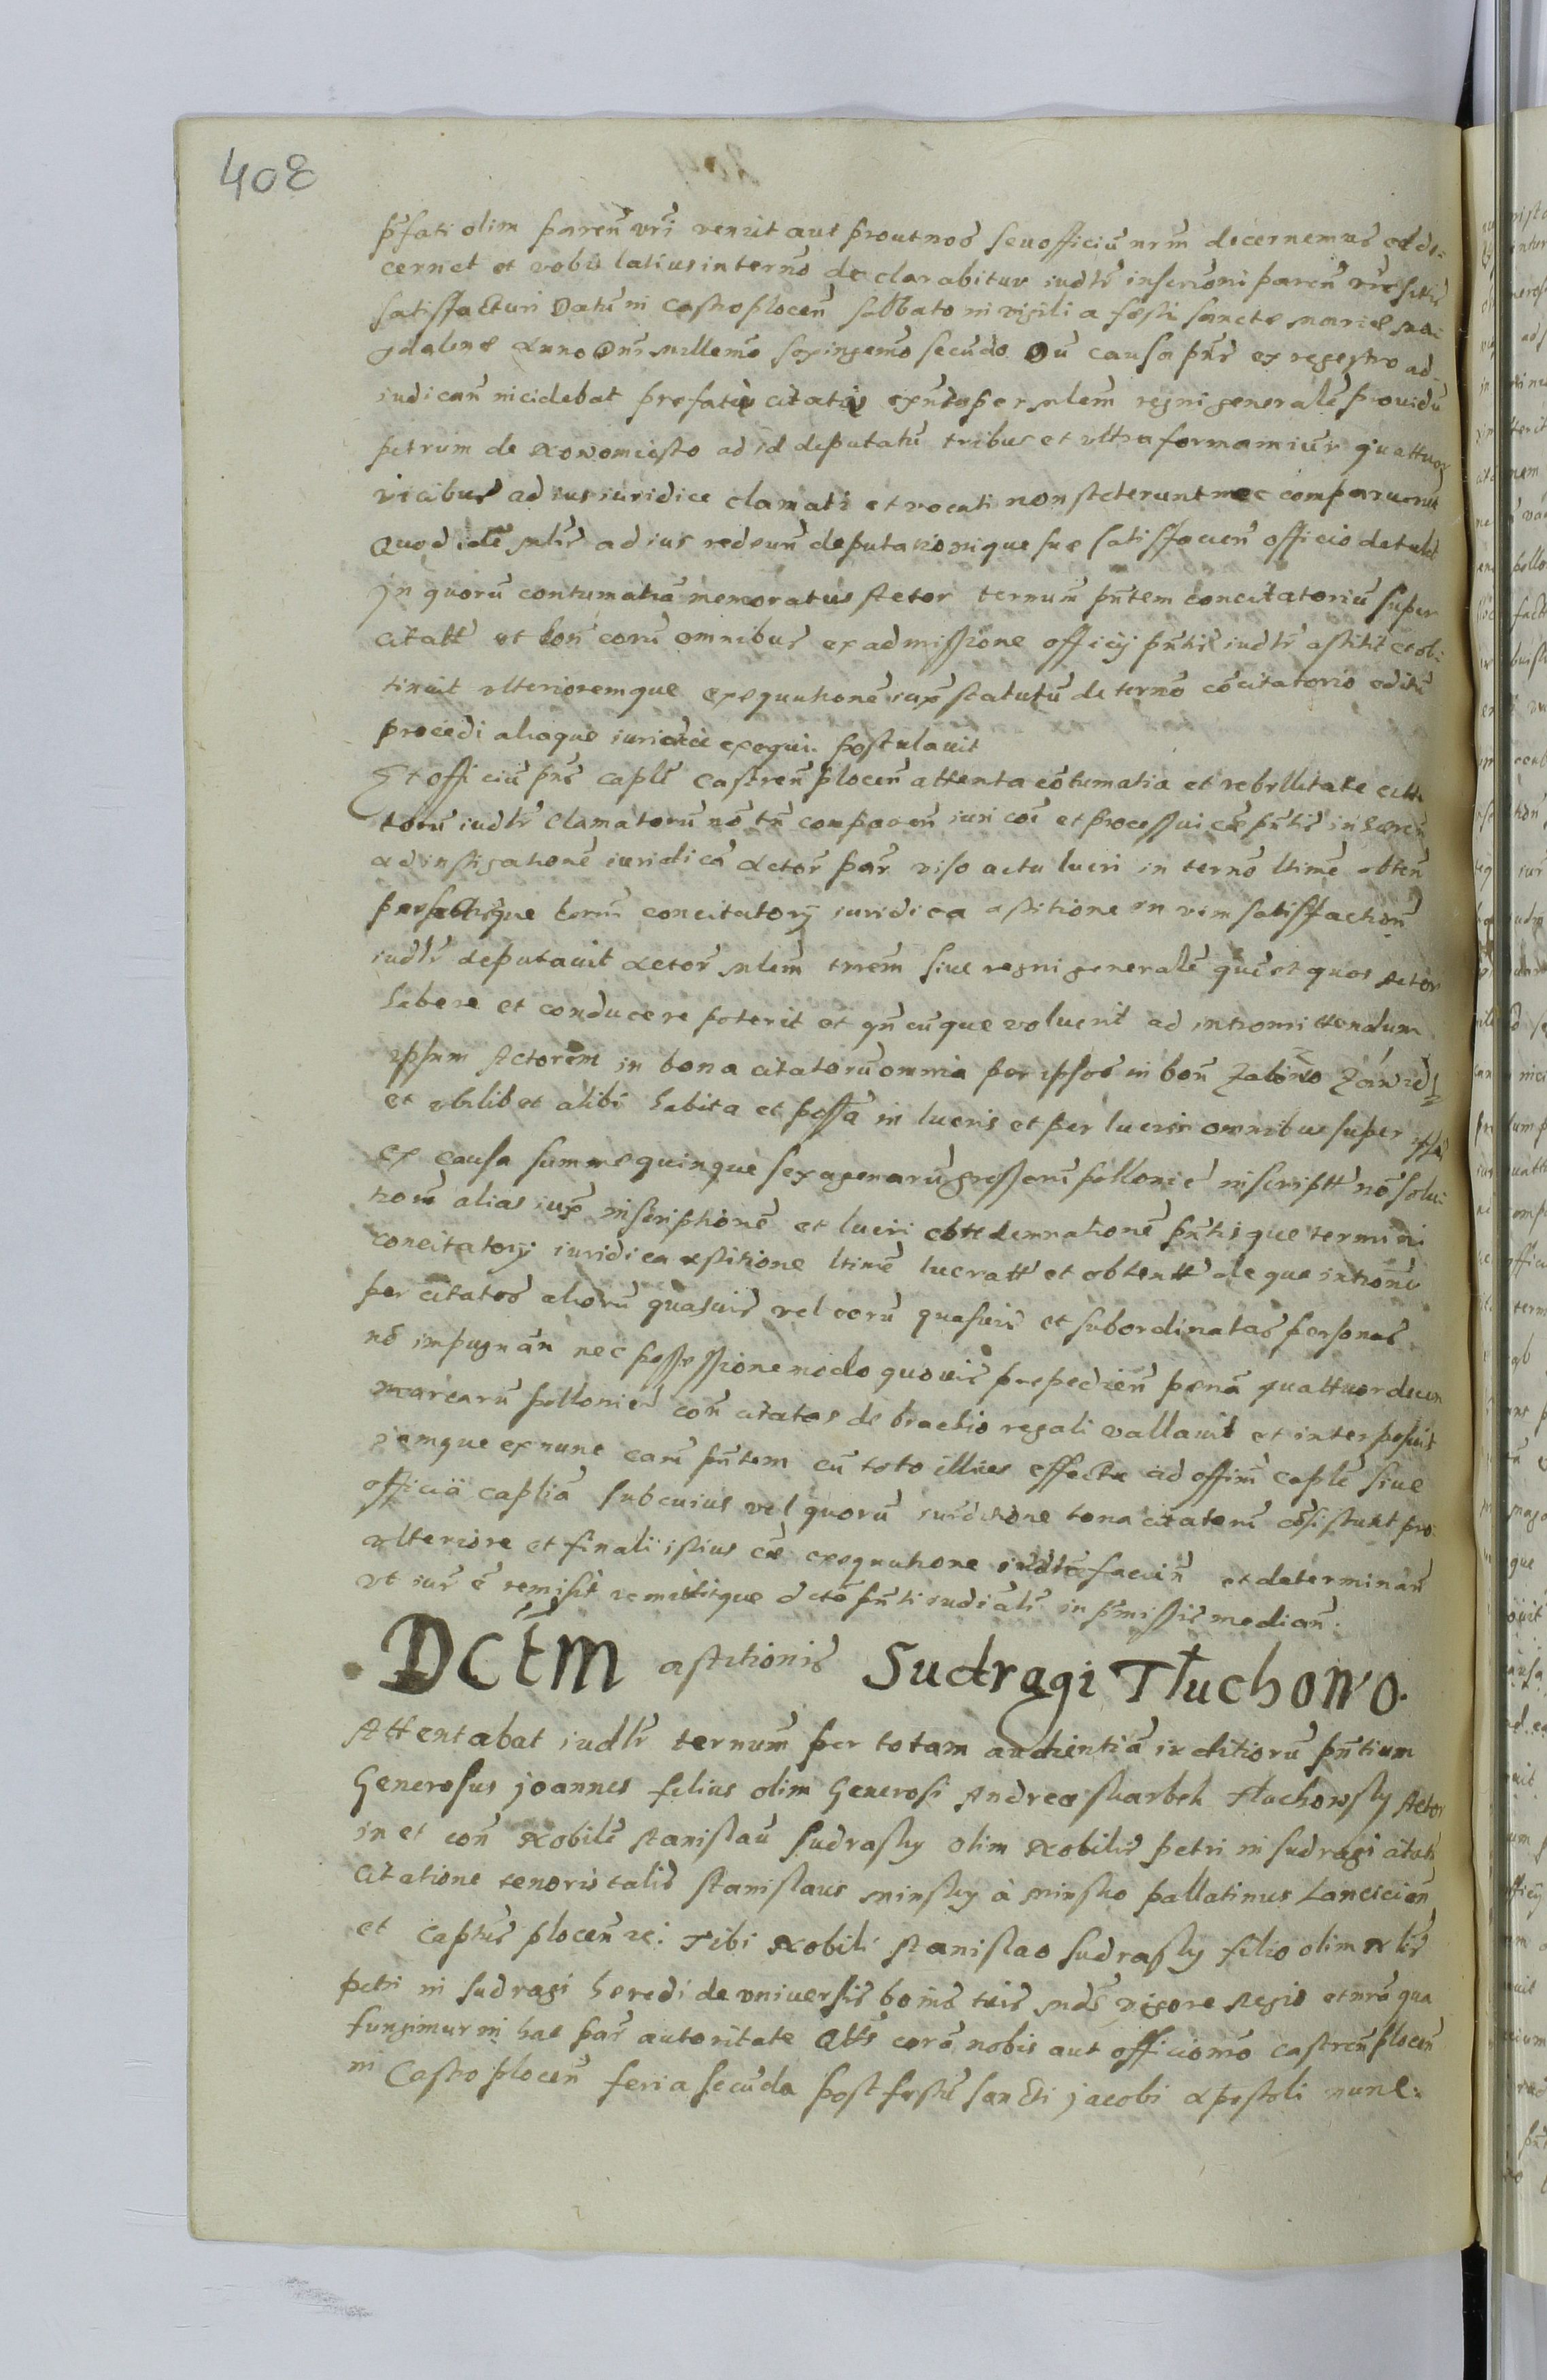 408
pñfati olim pareñ vri venit aut prout nos seu officiũ nrm decernemus et de=
cernet et vobis latius in terno declarabitur iudlr inscrioni pareñ vre
satisffacturi Datũ in Castro plocen̄ sabbato in vigilia festi sancte marie ma=
gdalene Anno Dni millemo sexingemo secũdo Dũ causa pñs ex regestro ad
iudicañ incidebat prefatis citatis per mlem regni generalẽ providũ
petrum de Nowomiasto ad id deputatũ tribus et vltra formam iur quattuor
vicibus ad ius iuridice clamati et vocati non steterunt nec comparuerũt
Quod idẽ mlis ad ius redeuñ deputationique sue satisffacien̄ officio detulit
In quorũ contumatiã memoratus Actor ternum pñtem concitatoriũ super
citatt et boñ eorũ omnibus ex admissione officij pñtis iudlr astitit et ob=
tinuit vlterioremque exequutionẽ iux statutũ de terno cõcitatorio editũ
procedi aliaque iuridice exequi postulavit
Et officiũ pñs caplẽ castren̄ plocen̄ attenta cõtumatia et rebellitate citta
torũ iudlr clamatorũ nõ tñ comparen̄ iuri coĩ et processui cẽ pñtis inhereñ
ad instigationẽ iuridicã Actor par viso actu lucri in terno ltime obteñ
termĩ concitatorij iuridica astitione in vim satisffactioñ
iudlr deputavit Actori mlem trrem sive regni generalẽ quẽ et quos Actor
habere et conducere poterit et qñcũque voluerit ad intromittendum
ipsum Actorem in bona citatorũ omnia per ipsos in boñ
et vbilibet alibi habita et possa in lucris et per lucrũ omnibus super
ex causa summe quinque sexagenarũ grossorũ pollonic inscriptt nõ solu=
tioñ alias iux inscriptionẽ et lucri pñtisque termini
concitatorij iuridica astitione ltime lucratt et obtentt de qua intrõne
per citatos aliorũ quasuis vel eorũ quasuis et subordinatas personas
nõ impugnañ nec possessione modo quovis prepedieñ penã quattuordecem
marcarũ pollonic coñ citatos de brachio regali vallavit et interposuit
iamque ex nunc cam pñtem cũ toto illius effectu ad offim caplẽ sive
officia capliã sub cuius vel quorũ iurdictione bona citatorũ cõsistunt pro
vlteriore et finali istius cẽ exequutione facieñ et determinañ
vt iur ẽ remisit remittitque dcto pñti iudiali in pmissis mediañ.
DCtM astitionis Sudragi Tłuchowo.
Attentabat iudlr ternum per totam audientiã iuditiorũ pñtium
Generosus joannes filius olim Generosi Andrea skarbek Tłuchowsky Actor
in et coñ Nobilẽ stanislaũ sudrasky olim Nobilis petri in sudragi
citatione tenoris talis stanislaus minsky à minsko pallatinus Lancicien̄
et captus plocen̄ rc: Tibi Nobili stanislao sudrasky filio olim Nlis
petri in sudragi heredi de vniversis bonis tuis mds vigore regio et nrã qua
fungimur in hac par autoritate Qtts corã nobis aut officio nrõ castren̄ plocen̄
in Castro plocen̄ feria secũda post festũ sancti jacobi apostoli nunc=